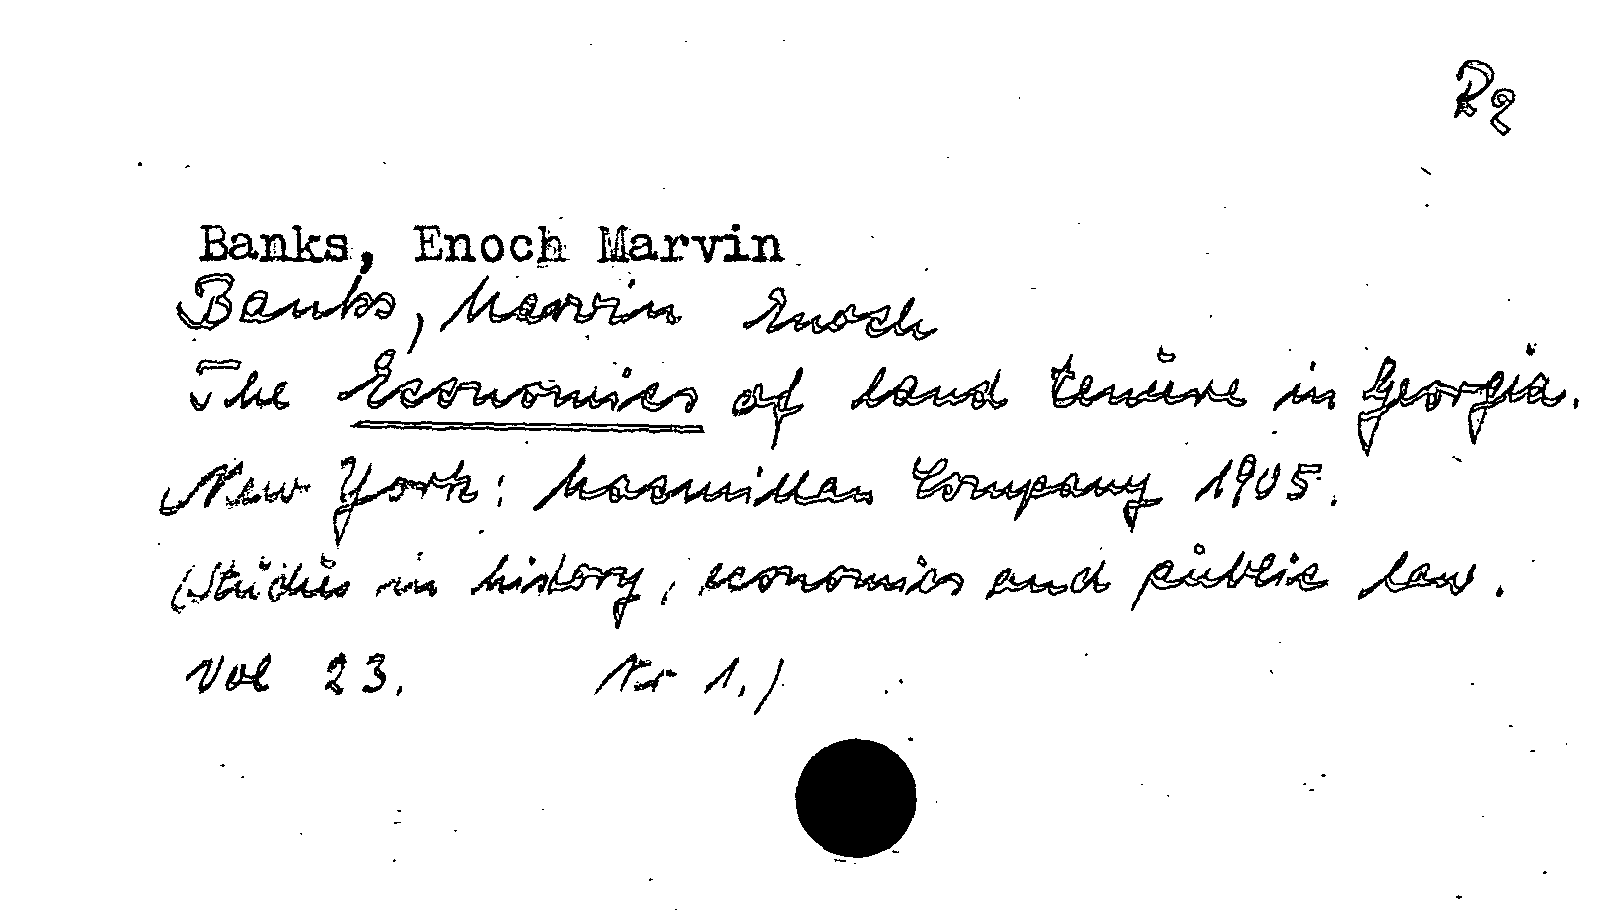 R2
Banks, Enoch Marvin
Banks, Marvin Enoch
The Economics of land tenure in Georgia.
New York: Macmillan Company 1905.
(Studies in history, economics and public law.
Vol 23. Nr 1.)